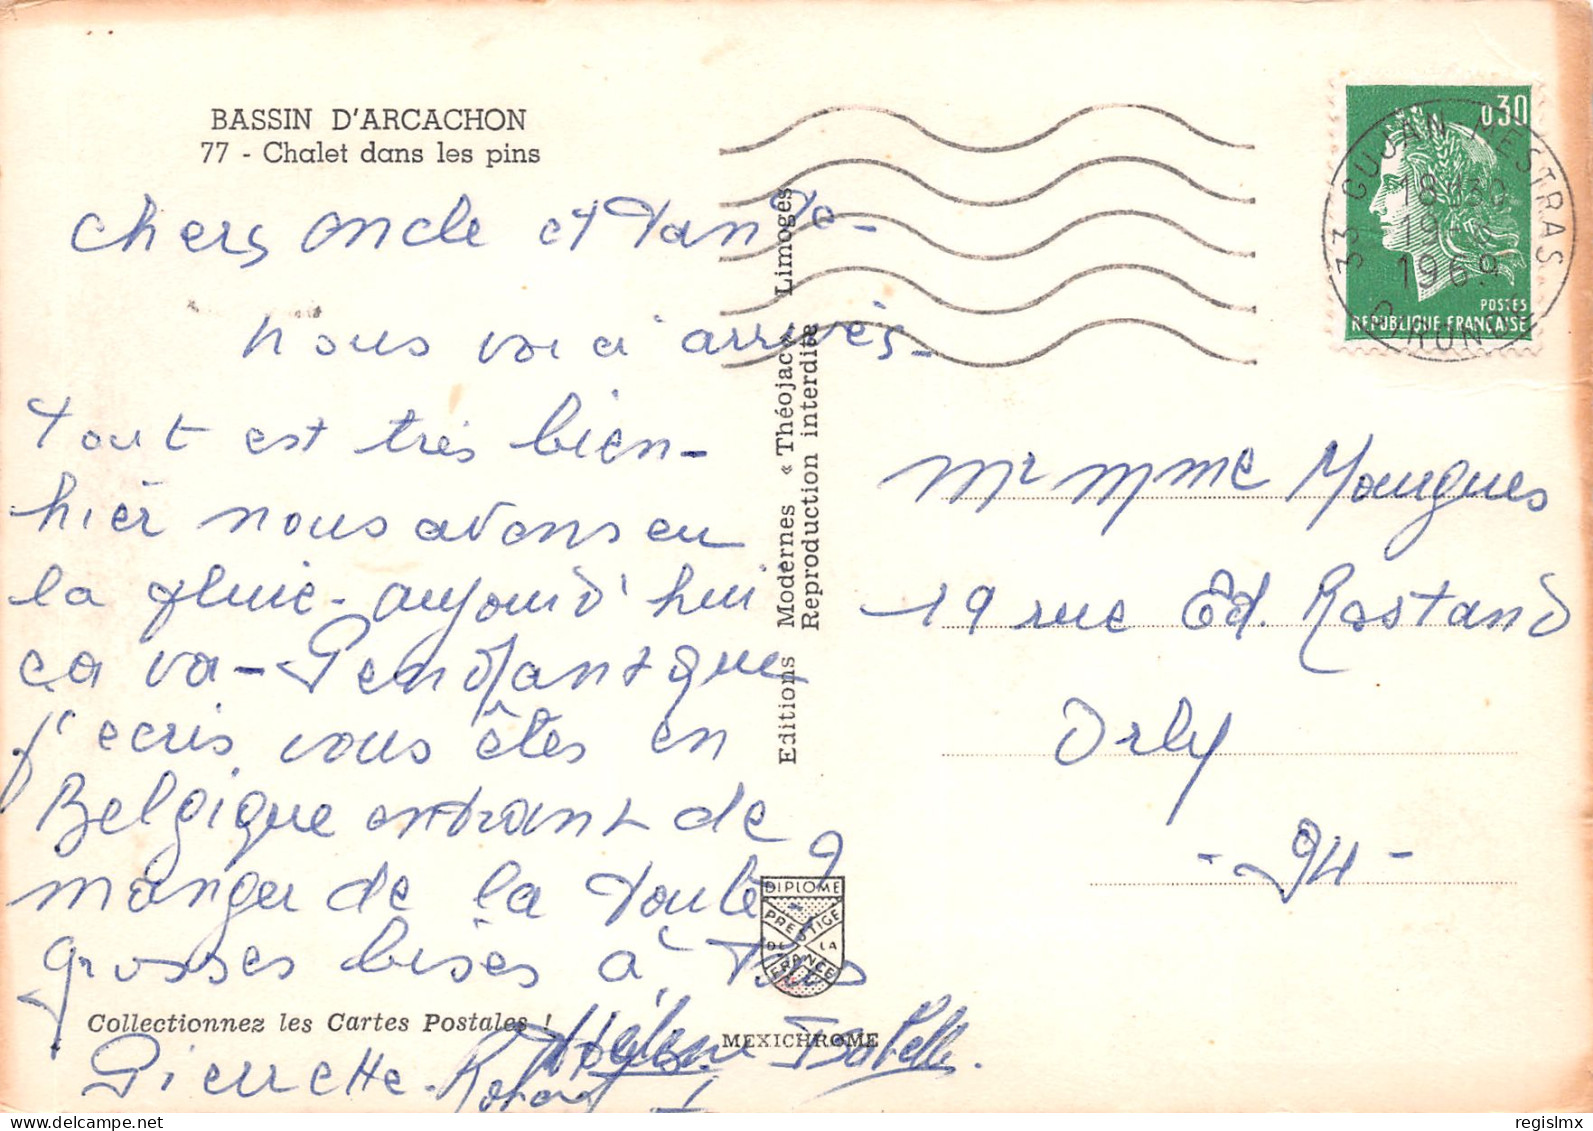 BASSIN D'ARCACHON
77 - Chalet dans les pins
Chers oncle et tante -
nous voici arrivés -
Tout est très bien -
hier nous avons eu
la pluie - aujourd'hui
ça va - Pendant que
j'ecris vous êtes en
Belgique entrant de
manger de la Toute ?
grosses bises à Tous
Pierrette - Hélène Isabelle.
Collectionnez les Cartes Postales !
MEXICHROME
DIPLOME
PRESTIGE
DE LA
FRANCE
Editions Modernes « Théojac » Limoges
Reproduction interdite
0,30
POSTES
REPUBLIQUE FRANÇAISE
33 GUJAN MESTRAS
18H30
1969
GIRONDE
Mr Mme Maugues
19 rue Ed. Rostand
Orly
- 94 -
regislmx